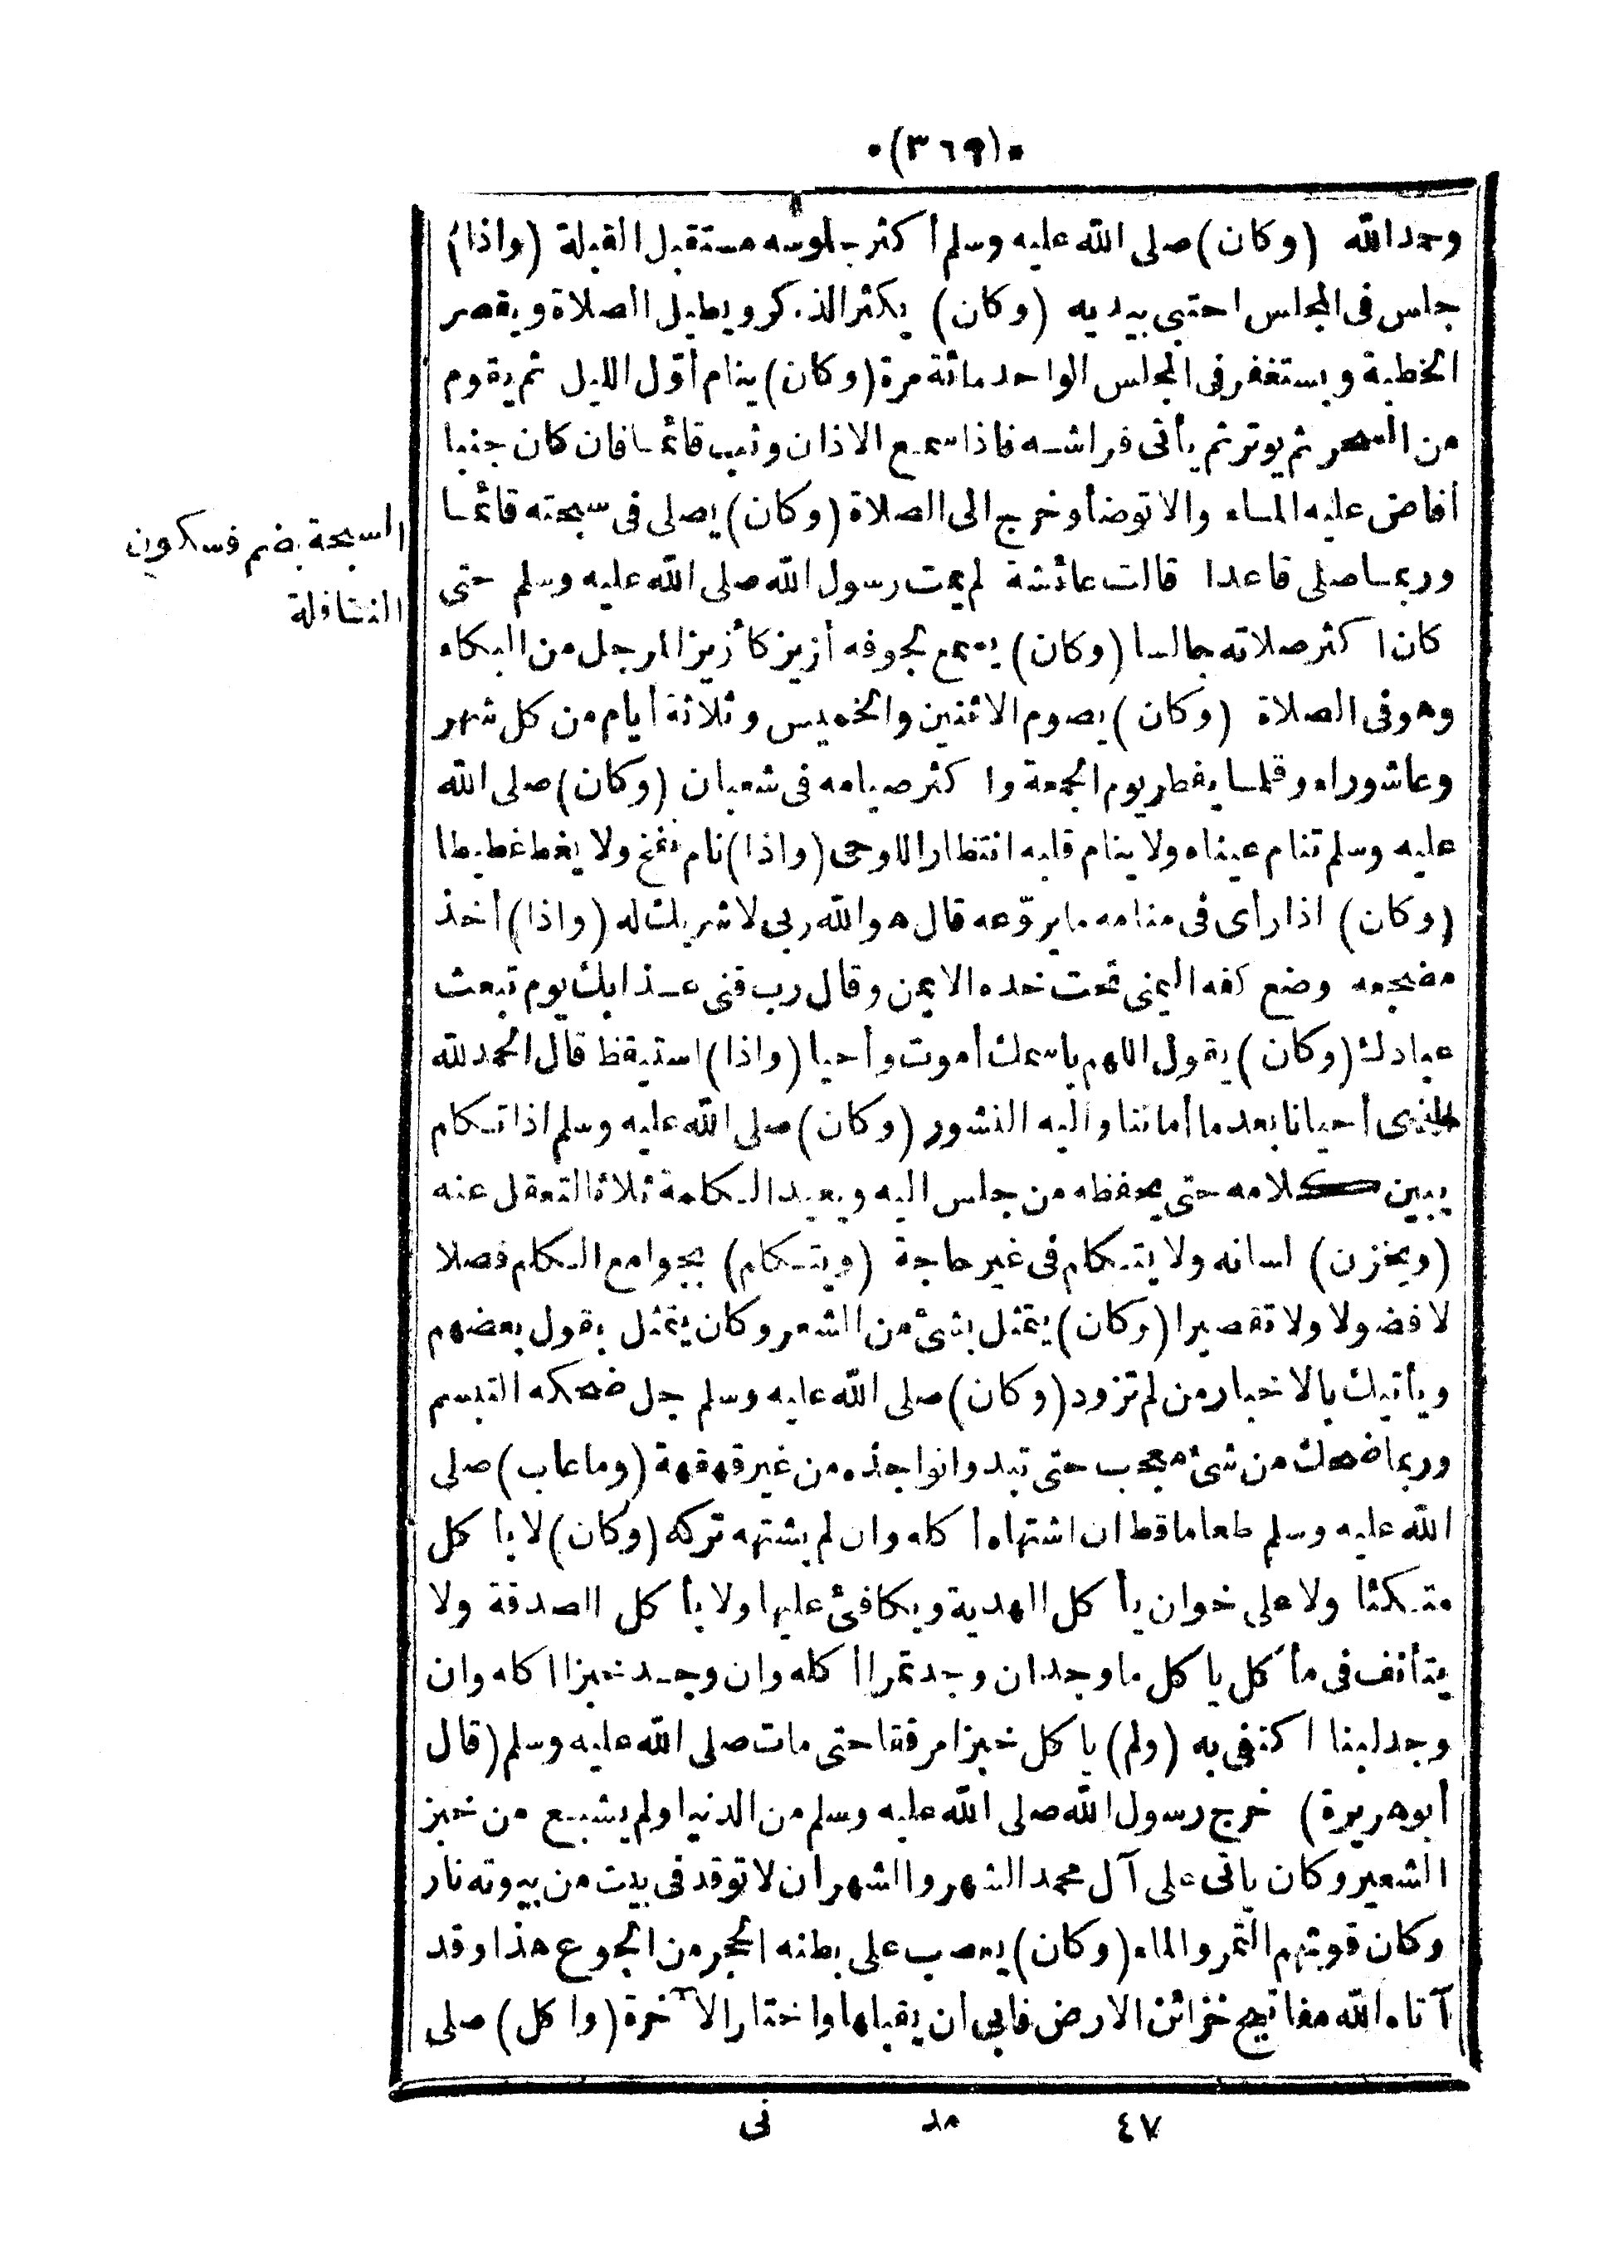 •(٣٦٩)•
وحمد الله (وكان) صلى الله عليه وسلم أكثر جلوسه مستقبل القبلة (واذا)
جلس فى المجلس احتبى بيديه (وكان) يكثر الذكر ويطيل الصلاة ويقصر
الخطبة ويستغفر فى المجلس الواحد مائة مرة (وكان) ينام أوّل الليل ثم يقوم
من السحر ثم يوتر ثم يأتى فراشه فاذا سمع الاذان وثب قائما فان كان جنبا
أفاض عليه الماء والا توضأ وخرج الى الصلاة (وكان) يصلى فى سبحته قائما
وربما صلى قاعدا قالت عائشة لم يمت رسول الله صلى الله عليه وسلم حتى
كان اكثر صلاته جالسا (وكان) يسمع لجوفه أزيز كأزيز المرجل من البكاء
وهو فى الصلاة (وكان) يصوم الاثنين والخميس وثلاثة أيام من كل شهر
وعاشوراء وقلما يفطر يوم الجمعة واكثر صيامه فى شعبان (وكان) صلى الله
عليه وسلم تنام عيناه ولا ينام قلبه انتظارا للوحى (واذا) نام نفخ ولا يغط غطيطا
(وكان) اذا رأى فى منامه ما يروّعه قال هو الله ربى لا شريك له (واذا) أخذ
مضجعه وضع كفه اليمنى تحت خده الايمن وقال رب قنى عذابك يوم تبعث
عبادك (وكان) يقول اللهم باسمك أموت وأحيا (واذا) استيقظ قال الحمد لله
الذى أحيانا بعد ما أماتنا واليه النشور (وكان) صلى الله عليه وسلم اذا تكلم
يبين كلامه حتى يحفظه من جلس اليه ويعيد الكلمة ثلاثا لتعقل عنه
(ويخزن) لسانه ولا يتكلم فى غير حاجة (ويتكلم) بجوامع الكلم فصلا
لا فضولا ولا تقصيرا (وكان) يتمثل بشئ من الشعر وكان يتمثل بقول بعضهم
ويأتيك بالاخبار من لم تزود (وكان) صلى الله عليه وسلم جل ضحكه التبسم
وربما ضحك من شئ معجب حتى تبدوا نواجذه من غير قهقهة (وما عاب) صلى
الله عليه وسلم طعاما قط ان اشتهاه أكله وان لم يشتهه تركه (وكان) لا يأكل
متكئا ولا على خوان يأكل الهدية ويكافئ عليها ولا يأكل الصدقة ولا
يتأنف فى مأكل ياكل ما وجد ان وجد تمرا أكله وان وجد خبزا اكله وان
وجد لبنا اكتفى به (ولم) ياكل خبزا مرققا حتى مات صلى الله عليه وسلم (قال
أبوهريرة) خرج رسول الله صلى الله عليه وسلم من الدنيا ولم يشبع من خبز
الشعير وكان ياتى على آل محمد الشهر والشهران لا توقد فى بيت من بيوته نار
وكان قوتهم التمر والماء (وكان) يعصب على بطنه الحجر من الجوع هذا وقد
آتاه الله مفاتيح خزائن الارض فابى ان يقبلها واختار الآخرة (واكل) صلى
السبحة بضم فسكون
النافلة
٤٧ مد نى